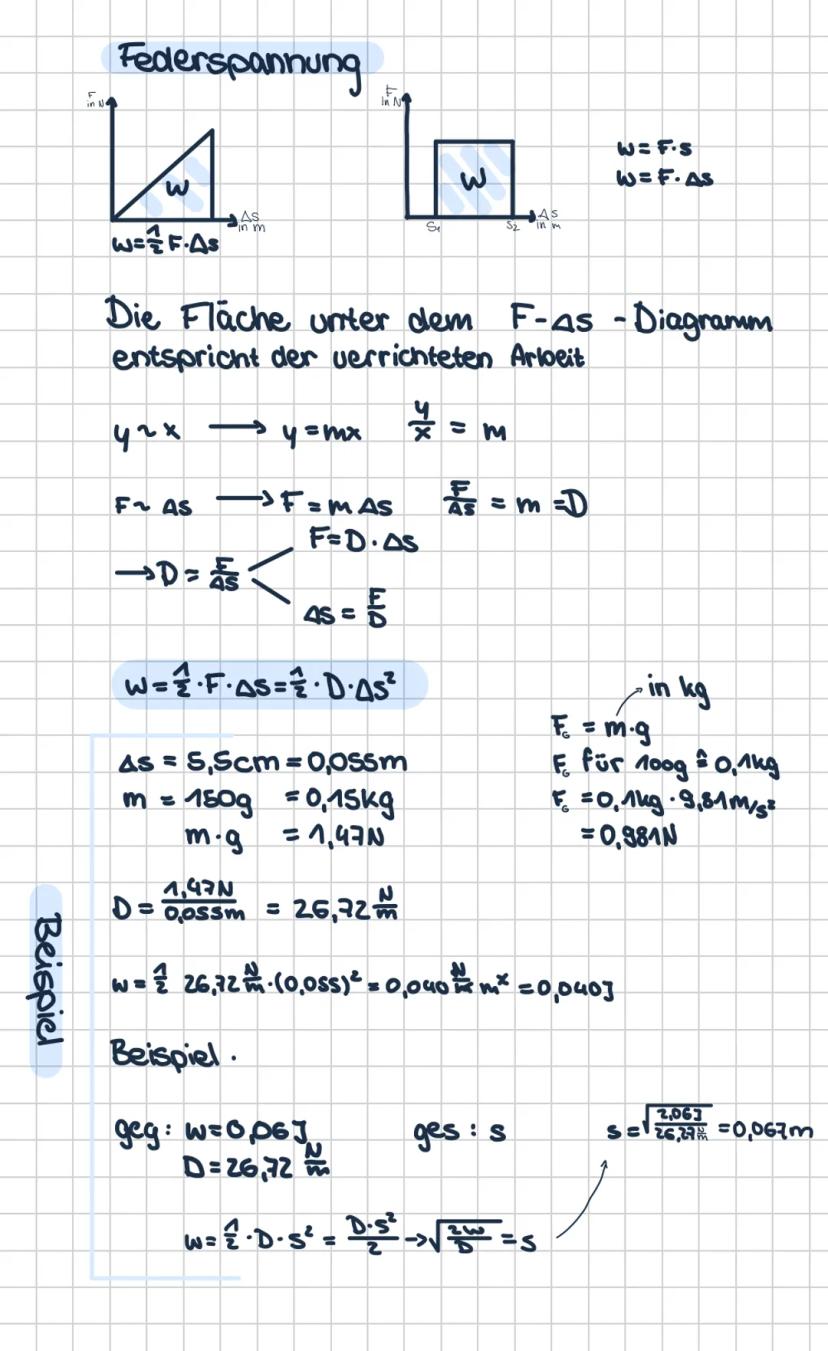 Federspannung
F
in N
W
Δs
in m
W=½F·Δs
F
in N
W
S₁
S₂
Δs
in m
W=F·s
W=F·Δs
Die Fläche unter dem F-Δs-Diagramm
entspricht der verrichteten Arbeit
y~x → y=mx y/x = m
F~Δs → F=mΔs F/Δs = m =D
F=D·Δs
→D = F/Δs
Δs = F/D
W=½·F·Δs=½·D·Δs²
in kg
F_G = m·g
F_G für 100g ≙ 0,1kg
F_G =0,1kg·9,81m/s²
=0,981N
Beispiel
Δs = 5,5cm=0,055m
m = 150g =0,15kg
m·g = 1,47N
D= 1,47N/0,055m = 26,72 N/m
W=½ 26,72 N/m·(0,055)²=0,040 N/m m² =0,040J
Beispiel.
geg: W=0,06J ges: s
D=26,72 N/m
s=√(2,06J/26,27 N/m) =0,067m
W=½·D·s² = D·s²/2 →√(2W/D) =s